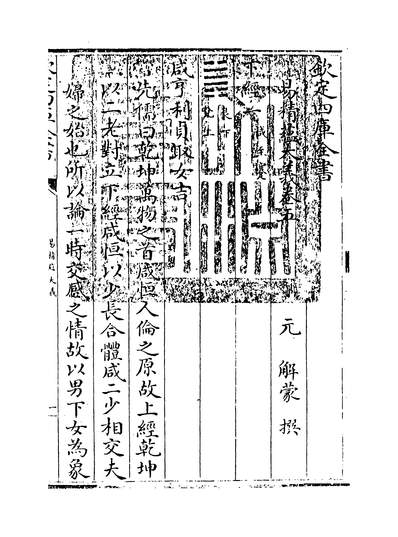 欽定四庫全書
易精蘊大義卷五
元 解蒙 撰
下經
咸亨利貞取女吉
先儒曰乾坤萬物之首咸恒人倫之原故上經乾坤
以二老對立下經咸恒以少長合體咸二少相交夫
婦之始也所以論一時交感之情故以男下女為象